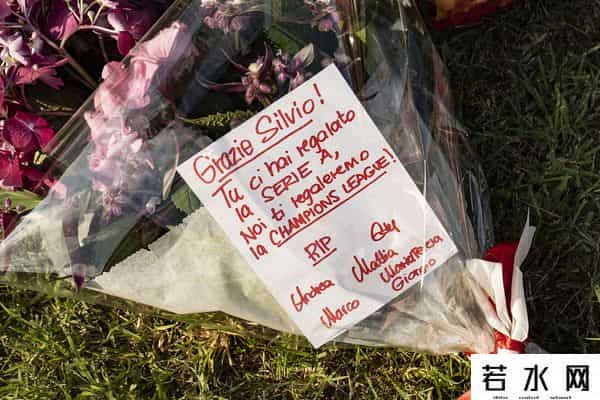 Grazie Silvio!
Tu ci hai regalato
la SERIE A,
Noi ti regaleremo
la CHAMPIONS LEAGUE!
RIP
Andrea
Mattia
Marco
Giorgio
若水网